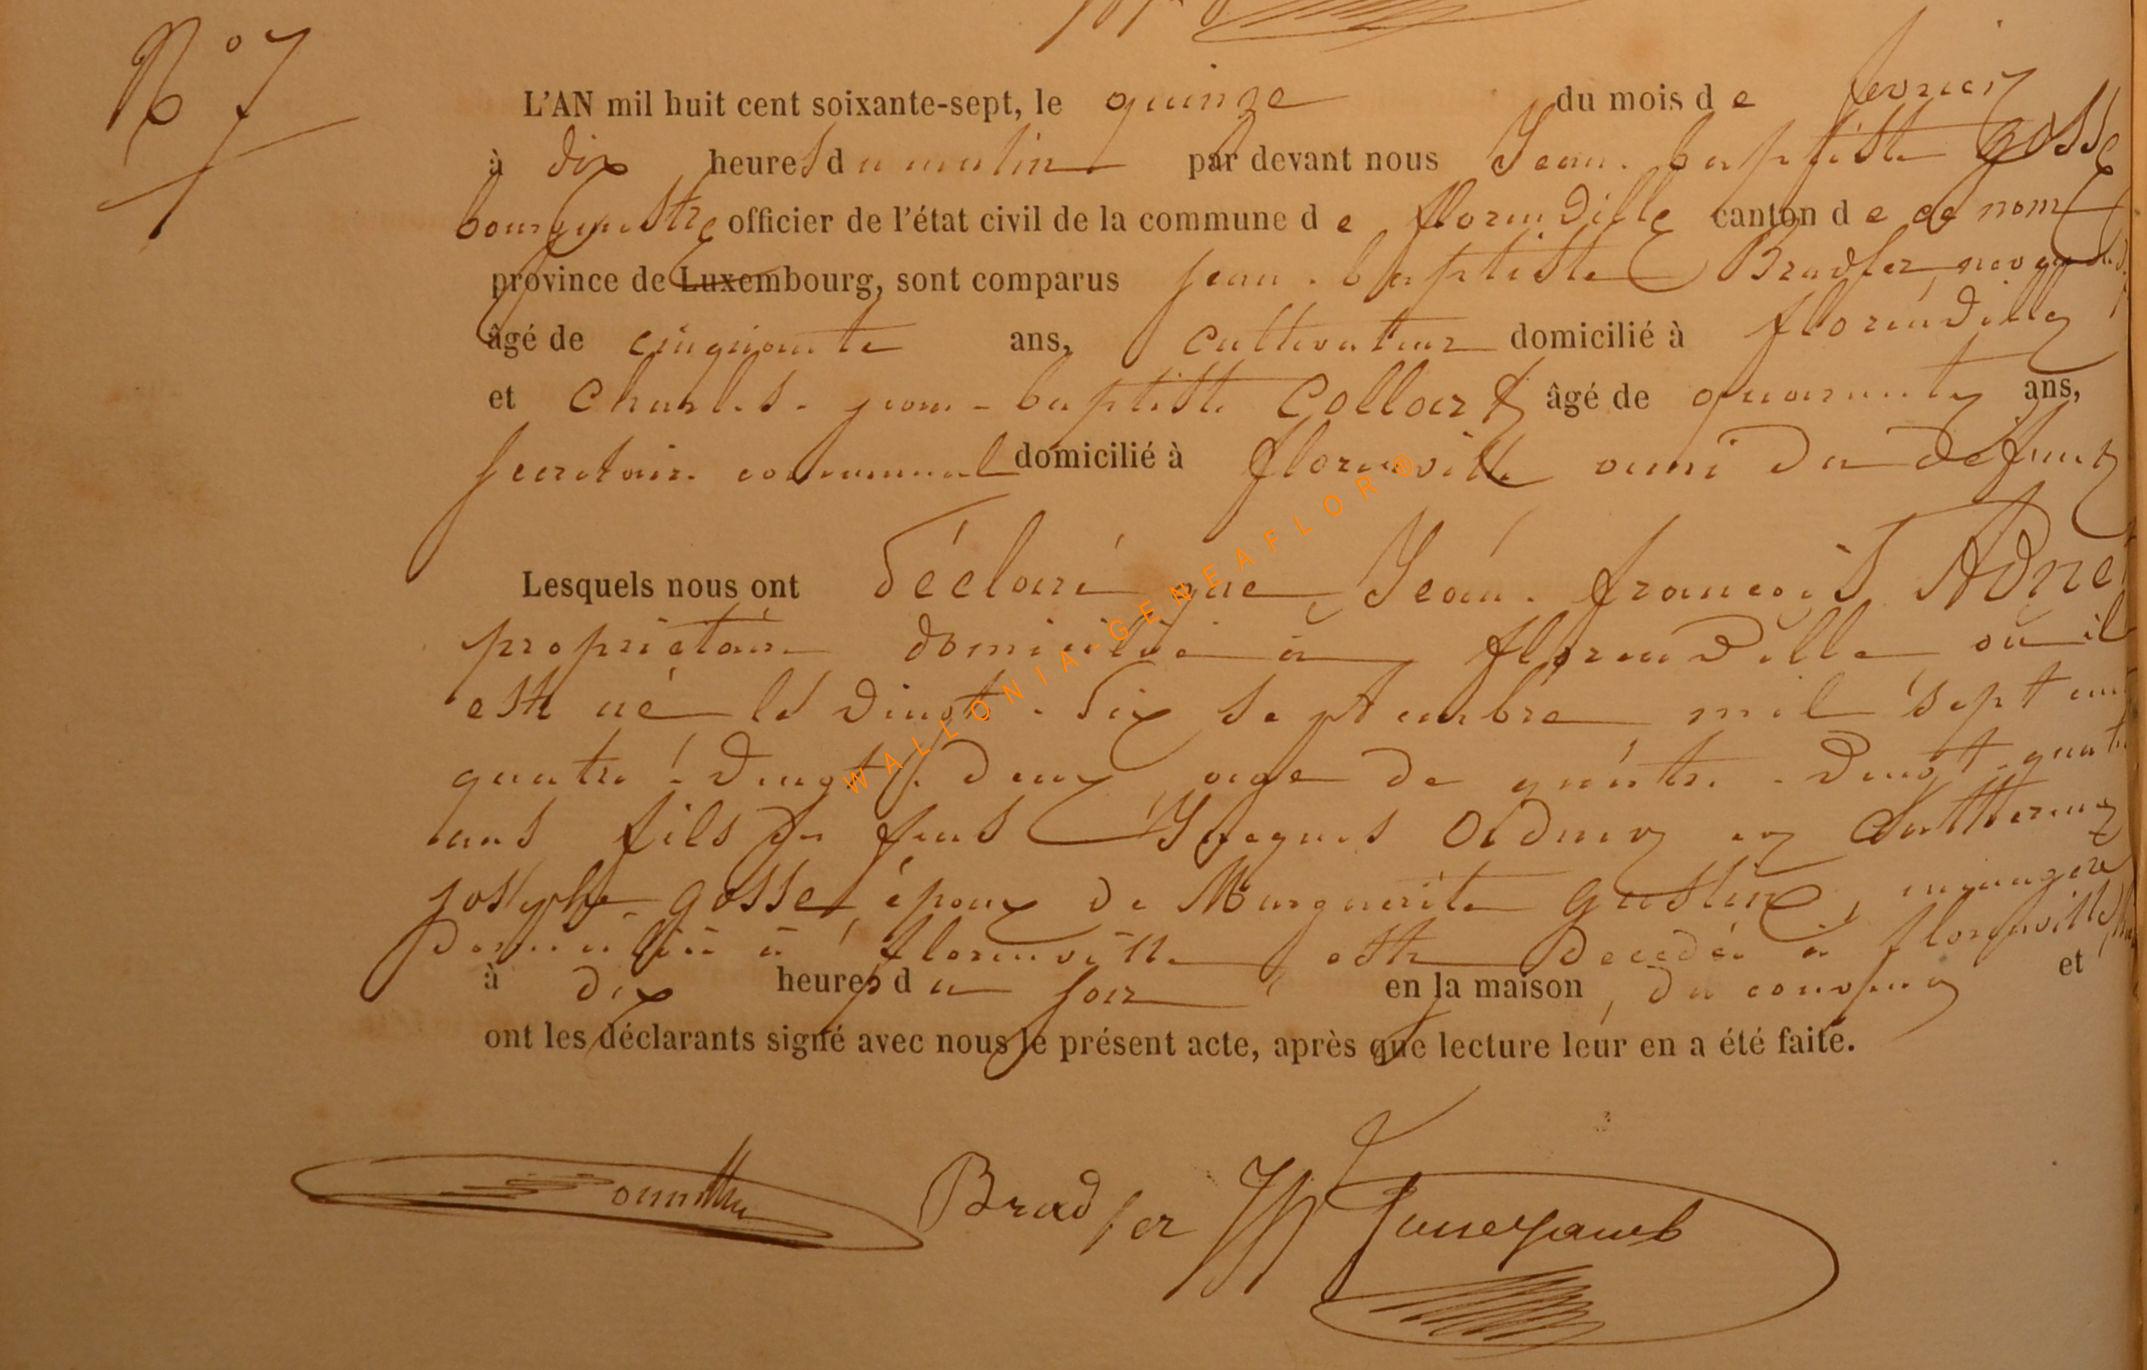 N° 7
L'AN mil huit cent soixante-sept, le quinze du mois de fevrier
à dix heures du matin par devant nous Jean-baptiste gosse
bourgmestre officier de l'état civil de la commune de florenville canton de ce nom
province de Luxembourg, sont comparus jean-baptiste Bradfer, neveu du d.
âgé de cinquante ans, cultivateur domicilié à florenville
et Charles-jean-baptiste Collart âgé de quarante ans,
secretaire communal domicilié à florenville ami du défunt
Lesquels nous ont déclaré que Jean-françois Adne
propriétaire domicilié à florenville où il
est né le vingt-six septembre mil sept cent
quatre-vingt-deux agé de quatre-vingt-quatre
ans fils de feus Jacques Adnet et Catherine
josephe gosse, époux de Marguerite Gustin, menagère
domiciliée à florenville est decedé à florenville
à dix heures du soir en la maison du et
ont les déclarants signé avec nous le présent acte, après que lecture leur en a été faite.
Bradfer
WALLONIA-GENEAFLOR®